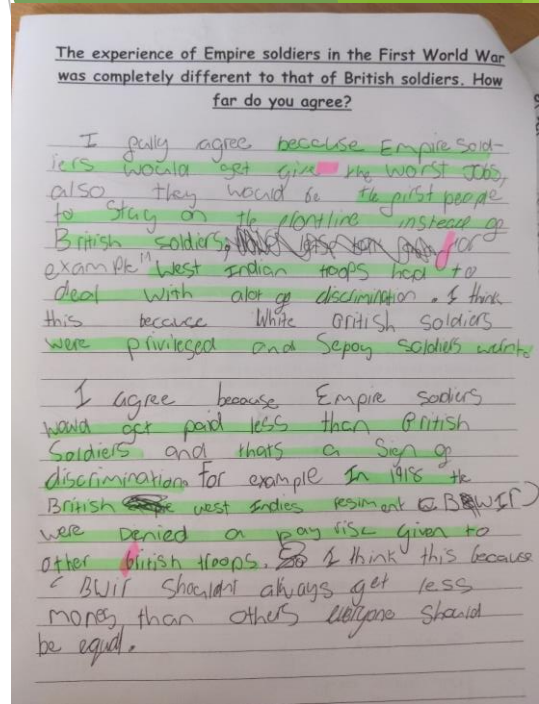 The experience of Empire soldiers in the First World War
was completely different to that of British soldiers. How
far do you agree?
I fully agree because Empire sold-
iers would get give the worst Jobs,
also they would be the first people
to Stay on the frontline instead of
British soldiers, for
example " West Indian troops had to
deal with alot of discrimination. I think
this because White British soldiers
were privileged and Sepoy soldiers
I agree because Empire soldiers
would get paid less than British
Soldiers and thats a Sign of
discrimination for example In 1918 the
British west Indies regiment (BWIR)
were Denied a pay rise given to
other british troops. I think this because
BWIR Shouldnt always get less
money than others everyone should
be equal.